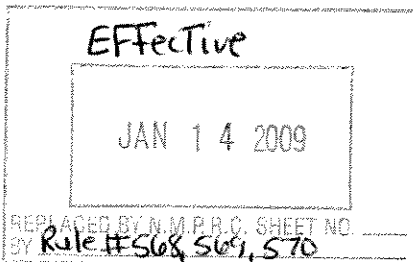 EFFecTive
JAN 14 2009
REPLACED BY N.M.P.R.C. SHEET NO.
BY Rule #568, 569, 570